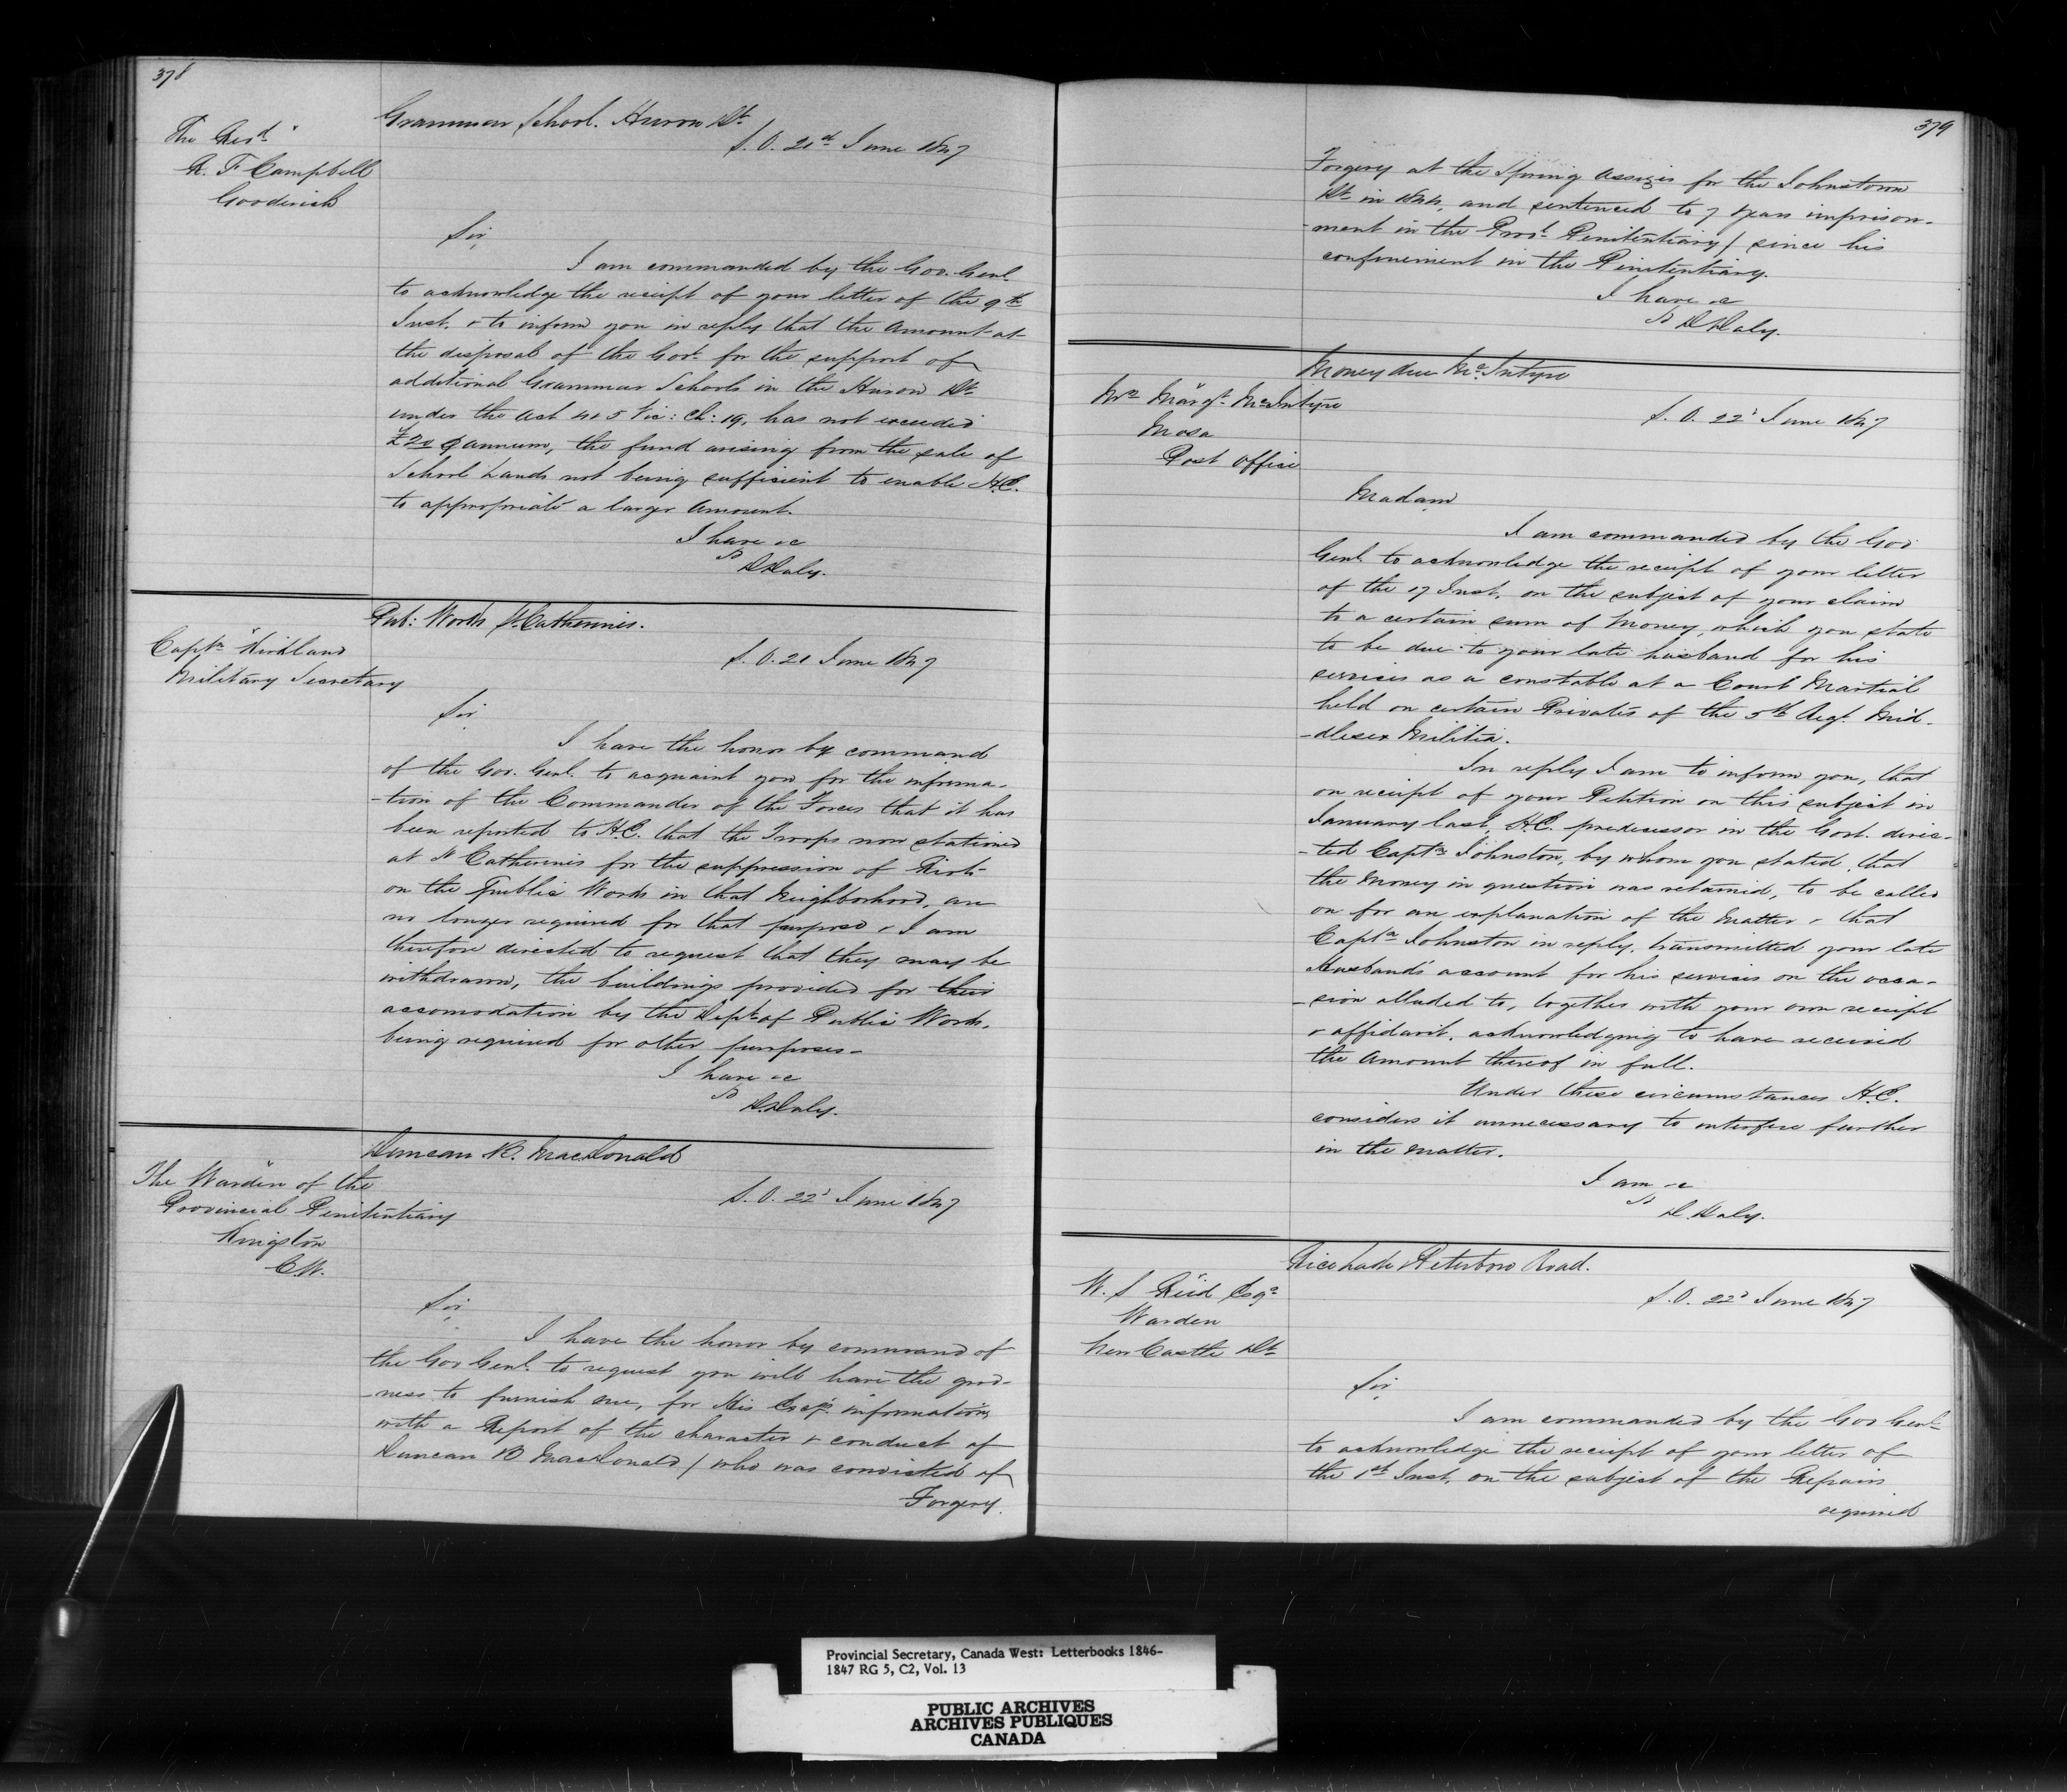 378
Grammar School. Huron Dt.
The Revd.
R. F Campbell
Gooderich
S. O. 21st June 1847
Sir,
I am commanded by the Gov. Genl.
to acknowledge the receipt of your letter of the 9th
Inst. & to inform you in reply that the Amount at
the disposal of the Govt. for the support of
additional Grammar Schools in the Huron Dt.
under the Act 4 & 5 Vic: Ch: 19, has not exceeded
£20 ⅌ annum, the fund arising from the sale of
School Lands not being sufficient to enable H.E.
to appropriate a larger Amount.
I have &c
D Daly.
Pub: Works St. Catherines.
Captn. Kirkland
Military Secretary
S. O. 21 June 1847
Sir
I have the honor by command
of the Gov. Genl. to acquaint you for the informa-
-tion of the Commander of the Forces that it has
been reported to H.E. that the Troops now stationed
at St Catherines for the suppression of Riots
on the Public Works in that Neighborhood, are
no longer required for that purpose & I am
therefore directed to request that they may be
withdrawn, the buildings provided for their
accomodation by the Dept. of Public Works,
being required for other purposes-
I have &c
D. Daly.
Duncan B. MacDonald
The Warden of the
Provincial Penitentiary
Kingston
C.W.
S. O. 22d June 1847
Sir,
I have the honor by command of
the Gov Genl. to request you will have the good-
-ness to furnish me, for His Excys. information,
with a Report of the character & conduct of
Duncan B MacDonald / who was convicted of
Forgery
379
Forgery at the Spring Assizes for the Johnstown
Dt. in 1844, and sentenced to 7 years imprison-
-ment in the Provl. Penitentiary / since his
confinement in the Penitentiary.
I have &c
D Daly.
Money due McIntyre
Mrs. Margt. McIntyre
Mosa
Post Office
S. O. 22d June 1847
Madam,
I am commanded by the Gov
Genl. to acknowledge the receipt of your letter
of the 17 Inst. on the subject of your claim
to a certain sum of Money, which you state
to be due to your late husband for his
services as a constable at a Court Martial
held on certain Privates of the 5th Regt. Mid-
-dlesex Militia.
In reply I am to inform you, that
on receipt of your Petition on this subject in
January last, H.E. predecessor in the Govt. direc-
-ted Captn. Johnston, by whom you stated that
the Money in question was retained, to be called
on for an explanation of the Matter & that
Captn. Johnston in reply, transmitted your late
Husband's account for his services on the occa-
-sion alluded to, together with your own receipt
& affidavit, acknowledging to have received
the Amount thereof in full.
Under these circumstances H.E.
considers it unnecessary to interfere further
in the matter.
I am &c
D. Daly.
Rice Lake Peterboro Road.
W. S Reid Esqr.
Warden
New Castle Dt.
S. O. 22d June 1847
Sir,
I am commanded by the Gov Genl.
to acknowledge the receipt of your letter of
the 1st Inst. on the subject of the Repairs
required
Provincial Secretary, Canada West: Letterbooks 1846-
1847 RG 5, C2, Vol. 13
PUBLIC ARCHIVES
ARCHIVES PUBLIQUES
CANADA